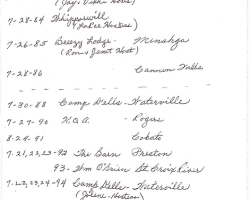 (Jay & Vikki Hosts)
7-28-84 Whipperwill
(LaRee Hostess)
7-26-85 Breezy Lodge - Menahga
(Ron & Janet Host)
7-28-86 Cannon Falls
7-30-88 Camp Dells - Waterville
7-27-90 K.O.A. - Rogers
8-24-91 Cokato
7-21,22,23-92 The Barn Preston
93 - Wm O'Brien St Croix River
7-22,23,24-94 Camp Dells - Waterville
Hostess)